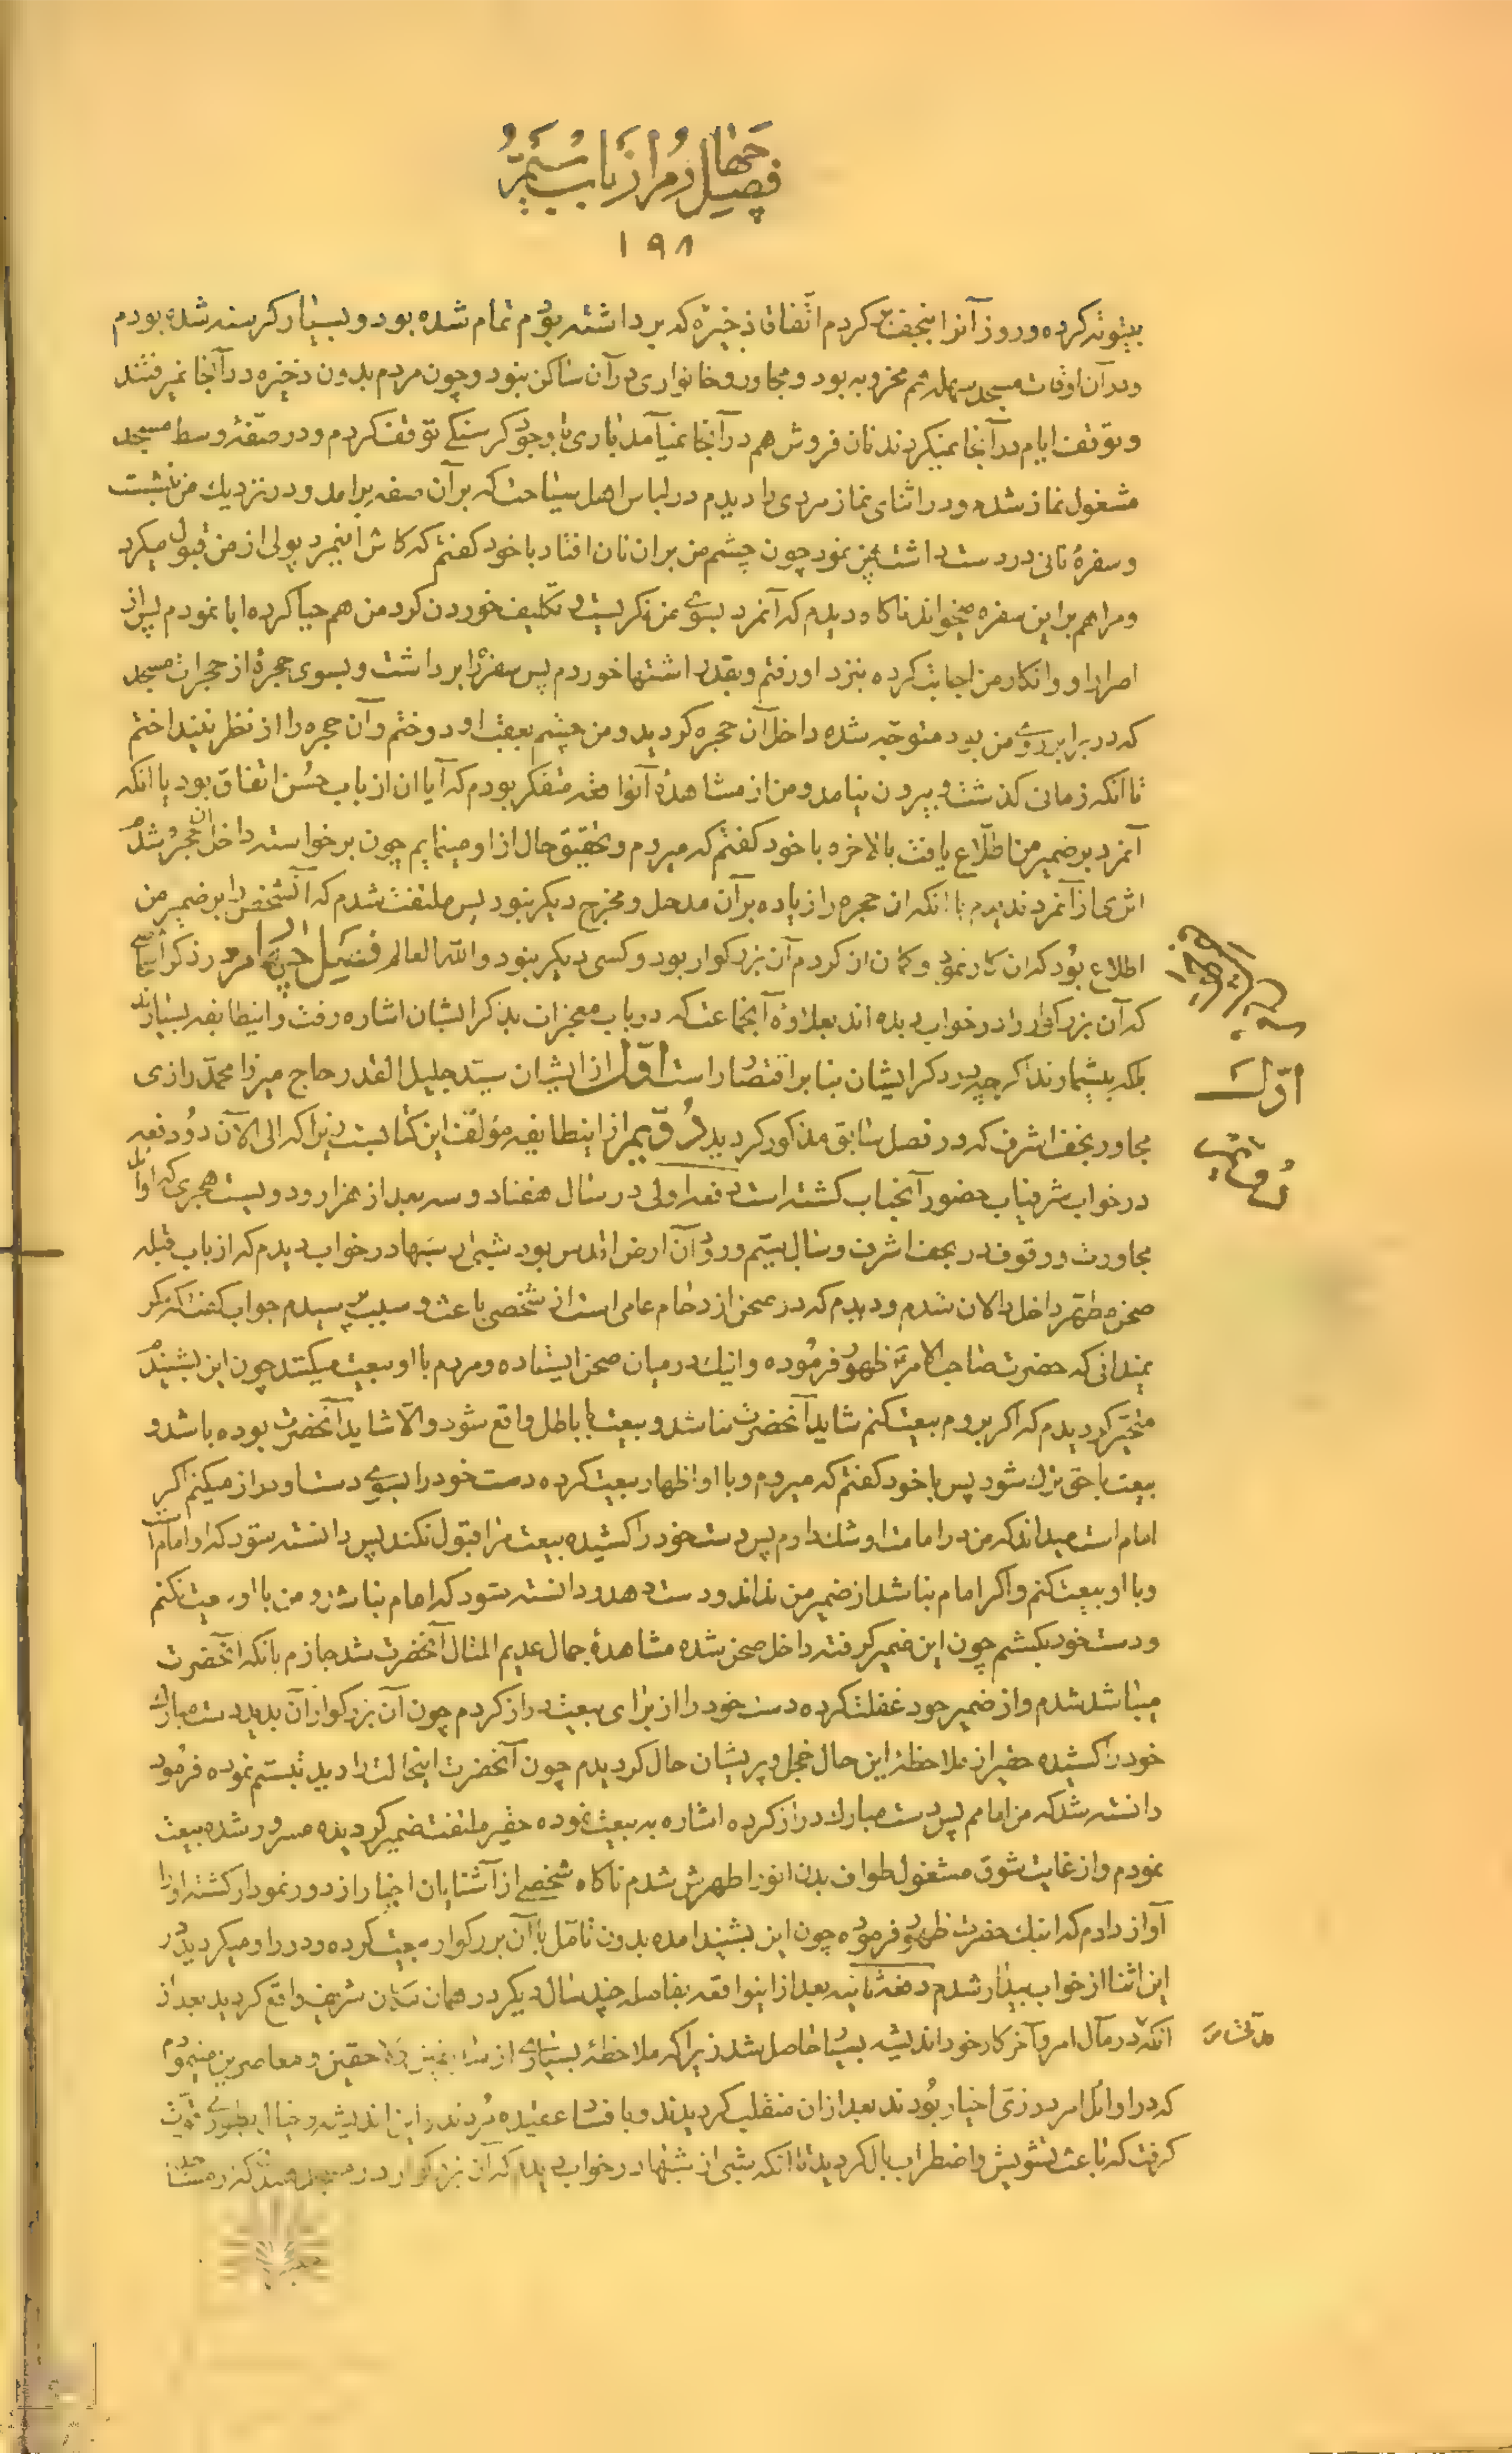 فصل چهارم از باب ششم
۱۹۸
بیتوته کرده و روز آنرا بنجف کردم اتفاقا ذخیره که برداشته بودم تمام شده بود و بسیار کرسنه شده بودم
و در آن اوقات مسجد سهله هم مخروبه بود و مجاور و خانواری در آن ساکن نبود و چون مردم بدون ذخیره در آنجا نمیرفتند
و توقف ایام در آنجا نمیکردند نان فروش هم در آنجا نمیآمد باری با وجود کرسنکی توقف کردم و در صفهٔ وسط مسجد
مشغول نماز شده و در اثنای نماز مردی را دیدم در لباس اهل سیاحت که بر آن صفه برامد و در نزدیك من نشست
و سفرهٔ نانی در دست داشت پهن نمود چون چشم من بران نان افتاد با خود کفتم که کاش اینمرد پولی از من قبول میکرد
و مرا هم بر این سفره میخواند ناکاه دیدم که آنمرد بسوی من نکریست و تکلیف خوردن کرد من هم حیا کرده ابا نمودم پس از
اصرار او و انکار من اجابت کرده بنزد او رفتم و بقدر اشتها خوردم پس سفره را برداشت و بسوی حجرهٔ از حجرات مسجد
که در برابر روی من بود متوجه شده داخل آن حجره کردید و من چشم بعقب او دوختم و آن حجره را از نظر نینداختم
تا آنکه زمانی کذشت و بیرون نیامد و من از مشاهدهٔ آنواقعه متفکر بودم که آیا ان از باب حسن اتفاق بود یا انکه
آنمرد بر ضمیر من اطلاع یافت بالاخره با خود کفتم که میروم و تحقیق حال از او مینمایم چون برخواسته داخل ان حجره شدم
اثری از آنمرد ندیدم با انکه ان حجره را زیاده بر آن مدخل و مخرج دیکر نبود پس ملتفت شدم که آنشخص را بر ضمیر من
اطلاع بود که ان کار نمود و کمان ان کردم آن بزرکوار بود و کسی دیکر نبود والله العالم فصل چهارم در ذکر اشخاصی
که آن بزرکوار را در خواب دیده اند بعلاوهٔ آنجماعت که در باب معجزات بذکر ایشان اشاره رفت و اینطایفه بسیارند
بلکه بیشمارند اکر چه در ذکر ایشان بنا بر اقتصار است اول از ایشان سید جلیل القدر حاج میرزا محمد رازی
مجاور نجف اشرف که در فصل سابق مذکور کردید دویم از اینطایفه مؤلف این کتابست زیرا که الی الآن دو دفعه
در خواب شرفیاب حضور آنجناب کشته است دفعه اولی در سال هفتاد و سه بعد از هزار و دویست هجری که اوایل
مجاورت و وقوف در نجف اشرف و سال بیتم ورود آن ارض اقدس بود شبی از شبها در خواب دیدم که از باب قبله
صحن مطهر داخل دالان شدم و دیدم که در صحن ازدحام عامی است از شخصی باعث و سبب پرسیدم جواب کفت که مکر
نمیدانی که حضرت صاحب الامر ظهور فرموده و اینك در میان صحن ایستاده و مردم با او بیعت میکنند چون این بشنیدم
متحیر کردیدم که اکر بروم بیعت کنم شاید آنحضرت نباشد و بیعت با باطل واقع شود و الا شاید آنحضرت بوده باشد و
بیعت با حق ترك شود پس با خود کفتم که میروم و با او اظهار بیعت کرده دست خود را بسوی دست او دراز میکنم اکر
امام است میداند که من در امامت او شك دارم پس دست خود را کشیده بیعت مرا قبول نکند پس دانسته شود که او امام است
و با او بیعت کنم و اکر امام نباشد از ضمیر من نداند و دست دهد و دانسته شود که امام نباشد و من با او بیعت نکنم
و دست خود بکشم چون این ضمیر کرفته داخل صحن شده مشاهدهٔ جمال عدیم المثال آنحضرت شد جازم بانکه آنحضرت
میباشد شدم و از ضمیر خود غفلت کرده دست خود را از برای بیعت دراز کردم چون آن بزرکوار آن بدید دست مبارك
خود را کشیده حقیر از ملاحظهٔ این حال خجل و پریشان حال کردیدم چون آنحضرت اینحالت را دید تبسم نموده فرمود
دانسته شد که من امامم پس دست مبارك دراز کرده اشاره به بیعت نموده حقیر ملتفت ضمیر کردیده مسرور شده بیعت
نمودم و از غایت شوق مشغول طواف بدن انور اطهرش شدم ناکاه شخصی از آشنایان اخیار از دور نمودار کشته او را
آواز دادم که اینك حضرت ظهور فرموده چون این بشنید امده بدون تامل با آن بزرکوار بیعت کرده و دور او میکردید در
این اثنا از خواب بیدار شدم دفعه ثانیه بعد از اینواقعه بفاصله چند سال دیکر در همان مکان شریف واقع کردید بعد از
انکه در مآل امر و آخر کار خود اندیشه بسیار حاصل شد زیرا که ملاحظهٔ بسیاری از سابقین و لاحقین و معاصرین مینمودم
که در اوائل امر در زی اخیار بودند بعد از ان منقلب کردیدند و با فساد عقیده مردند و این اندیشه و خیال بطوری قوت
کرفت که باعث تشویش و اضطراب بال کردید تا آنکه شبی از شبها در خواب دیدم که آن بزرکوار در
اول
دویم